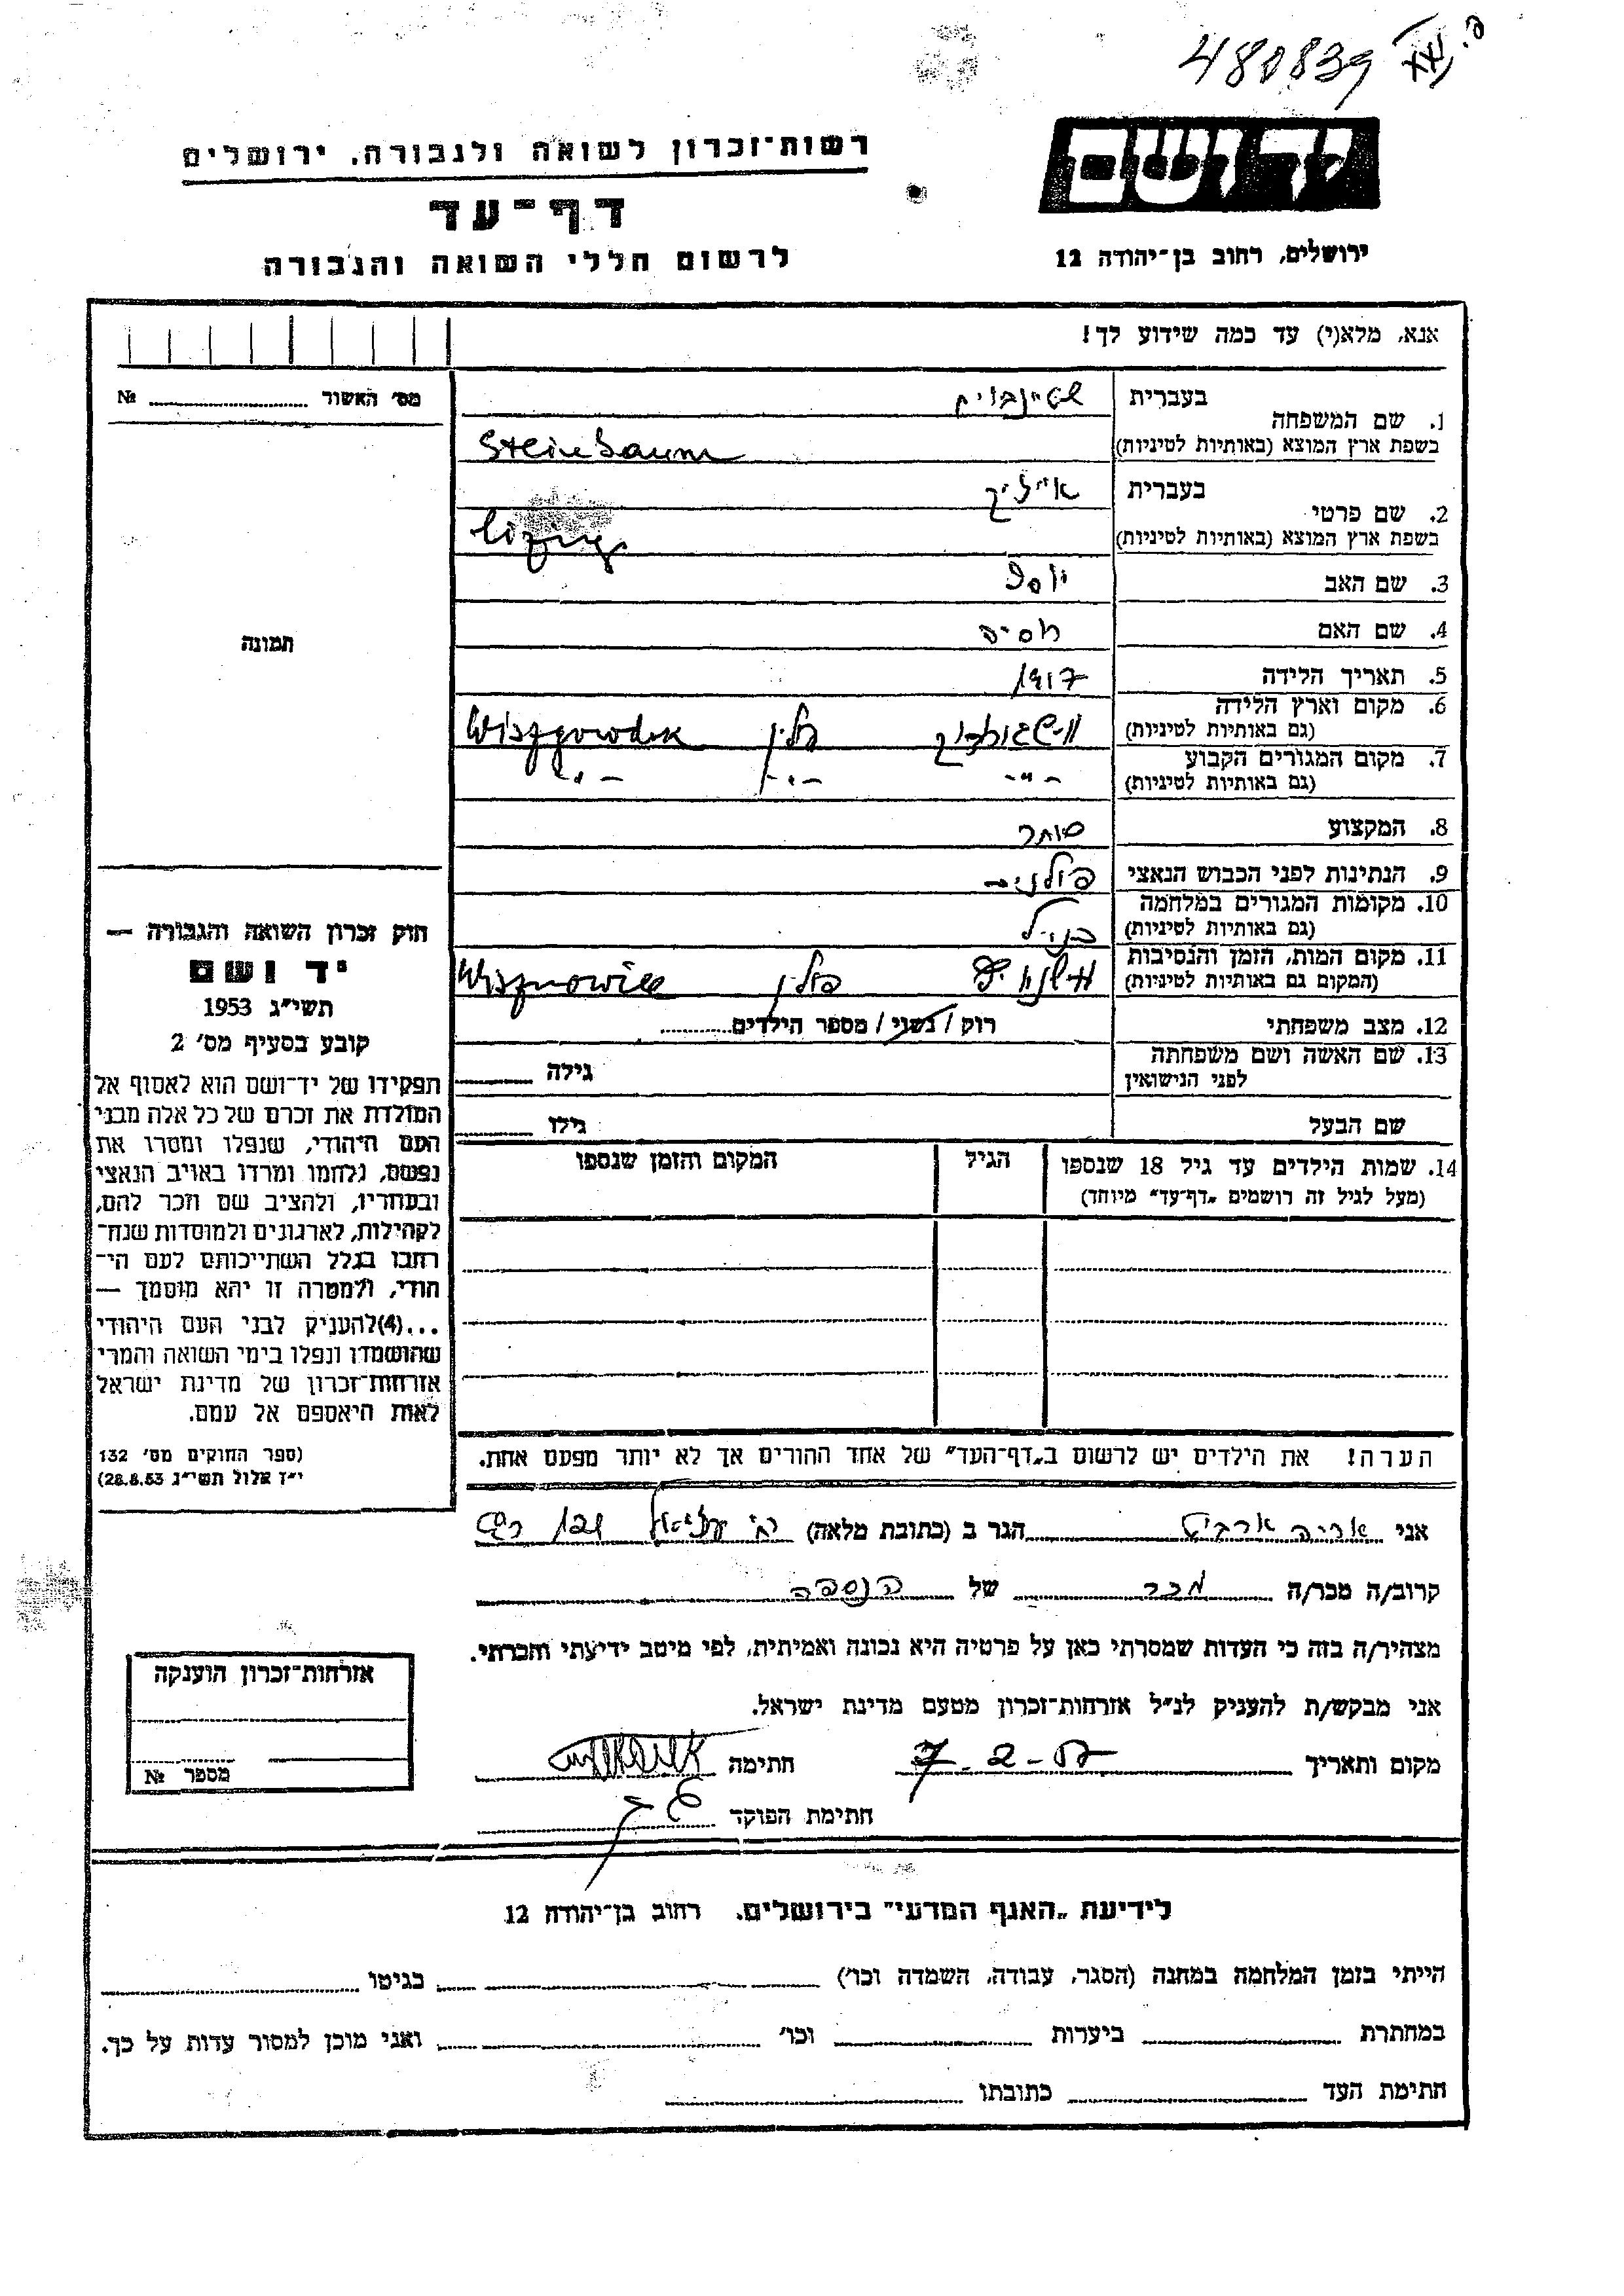 480839
רשות־זכרון לשואה ולגבורה, ירושלים
יד ושם
דף־עד
לרשום חללי השואה והגבורה
ירושלים, רחוב בן־יהודה 12
אנא, מלא(י) עד כמה שידוע לך!
מס' האשור № 
1. שם המשפחה
בעברית שטיינבוים
בשפת ארץ המוצא (באותיות לטיניות) Steinbaum
2. שם פרטי
בעברית אייזיק
בשפת ארץ המוצא (באותיות לטיניות)
3. שם האב יוסף
4. שם האם
5. תאריך הלידה 1917
6. מקום וארץ הלידה
(גם באותיות לטיניות) פולין Wiszgorodek
7. מקום המגורים הקבוע
(גם באותיות לטיניות) - " - - " - - " -
8. המקצוע סוחר
9. הנתינות לפני הכבוש הנאצי פולנית
10. מקומות המגורים במלחמה
(גם באותיות לטיניות) כנ"ל
11. מקום המות, הזמן והנסיבות
(המקום גם באותיות לטיניות) פולין Wisznowiec
12. מצב משפחתי רוק / נשוי / מספר הילדים
13. שם האשה ושם משפחתה
לפני הנישואין
גילה
שם הבעל גילו
14. שמות הילדים עד גיל 18 שנספו הגיל המקום והזמן שנספו
(מעל לגיל זה רושמים „דף־עד" מיוחד)
הערה! את הילדים יש לרשום ב„דף־העד" של אחד ההורים אך לא יותר מפעם אחת.
תמונה
חוק זכרון השואה והגבורה —
יד ושם
תשי"ג 1953
קובע בסעיף מס' 2
תפקידו של יד־ושם הוא לאסוף אל
המולדת את זכרם של כל אלה מבני
העם היהודי, שנפלו ומסרו את
נפשם, נלחמו ומרדו באויב הנאצי
ובעוזריו, ולהציב שם וזכר להם,
לקהילות, לארגונים ולמוסדות שנח־
רבו בגלל השתייכותם לעם הי־
הודי, ולמטרה זו יהא מוסמך —
...(4)להעניק לבני העם היהודי
שהושמדו ונפלו בימי השואה והמרי
אזרחות־זכרון של מדינת ישראל
לאות היאספם אל עמם.
(ספר החוקים מס' 132
י"ז אלול תשי"ג 28.8.53)
אני אריה הגר ב (כתובת מלאה)
קרוב/ה מכר/ה מכר של הנספה
מצהיר/ה בזה כי העדות שמסרתי כאן על פרטיה היא נכונה ואמיתית, לפי מיטב ידיעתי והכרתי.
אני מבקש/ת להעניק לנ"ל אזרחות־זכרון מטעם מדינת ישראל.
מקום ותאריך 7-2- חתימה
חתימת הפוקד
אזרחות־זכרון הוענקה
מספר №
לידיעת „האגף המדעי" בירושלים. רחוב בן־יהודה 12
הייתי בזמן המלחמה במחנה (הסגר, עבודה, השמדה וכו') בגיטו
במחתרת ביערות וכו' ואני מוכן למסור עדות על כך.
חתימת העד כתובתו